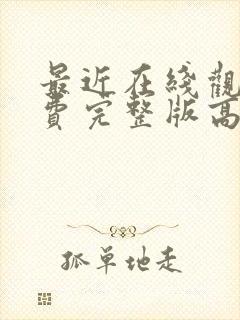 最近在綫觀
費完整版高
孤單地走